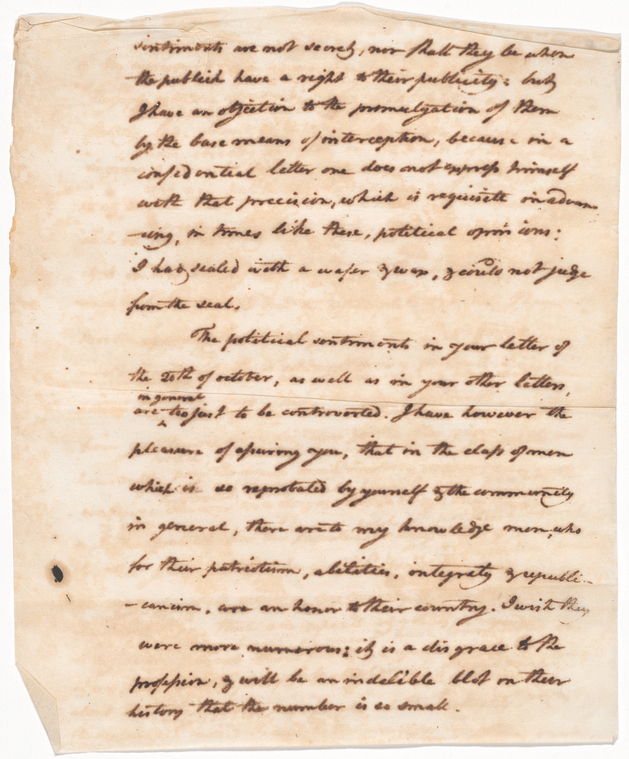 sentiments are not secret, nor shall they be when
the publick have a right to their publicity: but
I have an objection to the promulgation of them
by the base means of interception, because in a
confidential letter one does not express himself
with that precision, which is requisite in advan-
-cing, in times like these, political opinions:
I had sealed with a wafer & wax, & could not judge
from the seal.
The political sentiments in your letter of
the 20th of october, as well as in your other letters,
in general
are too just to be controverted. I have however the
pleasure of assuring you, that in the class of men
which is so reprobated by yourself & the community
in general, there are to my knowledge men, who
for their patriotism, abilities, integrity & republi-
-canism, are an honor to their country. I wish they
were more numerous; it is a disgrace to the
profession, & will be an indelible blot on their
history that the number is so small.